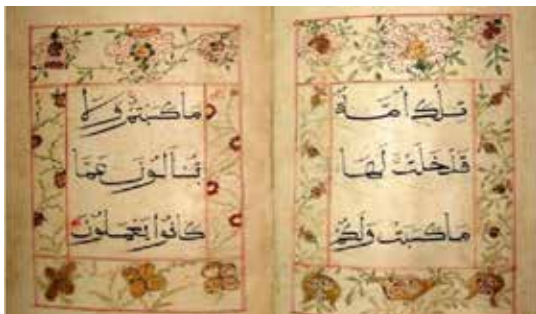 تلك أمة
قد خلت لها
ما كسبت ولكم
ما كسبتم ولا
تسألون عما
كانوا يعملون